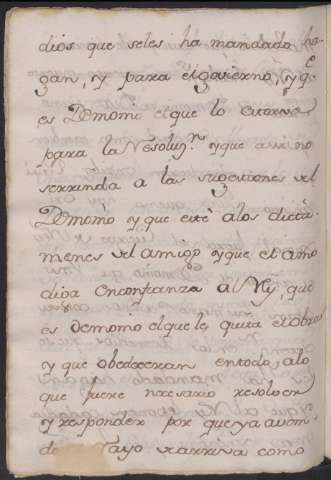 dios que seles ha mandado ha
gan, y para el govierno, y q.e
es Demonio el que lo estorva
para la Resoluz.n y que assi no
se rrinda a las sugestiones del
Demonio y que esté a los dicta
menes del amigo y que el amo
diga en confianza al Rey, que
es demonio el que le quita el obrar
y que obedeceran en todo, a lo
que fuere nezesario resolver
y responder por que ya a
de Rayo arriva como